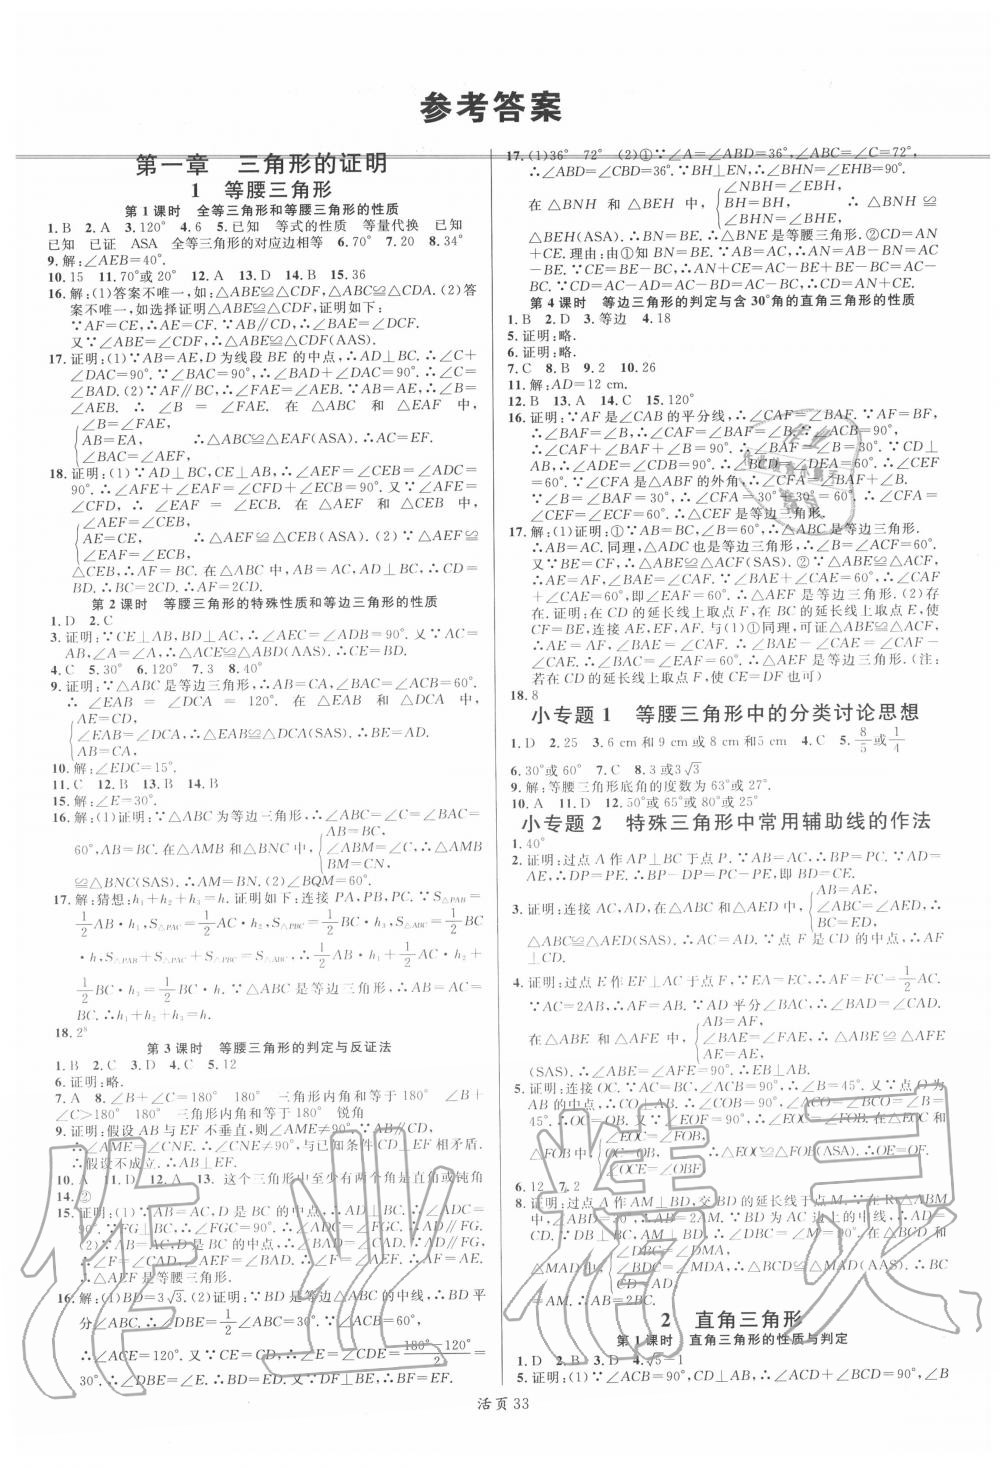 参考答案
第一章　三角形的证明
1　等腰三角形
第1课时　全等三角形和等腰三角形的性质
1.B　2.A　3.120°　4.6　5.已知　等式的性质　等量代换　已知
已知　已证　ASA　全等三角形的对应边相等　6.70°　7.20　8.34°
9.解:∠AEB=40°.
10.15　11.70°或20°　12.A　13.D　14.B　15.36
16.解:(1)答案不唯一,如:△ABE≌△CDF,△ABC≌△CDA.(2)答
案不唯一,如选择证明△ABE≌△CDF,证明如下:
∵AF=CE,∴AE=CF.∵AB∥CD,∴∠BAE=∠DCF.
又∵∠ABE=∠CDF,∴△ABE≌△CDF(AAS).
17.证明:(1)∵AB=AE,D为线段BE的中点,∴AD⊥BC.∴∠C+
∠DAC=90°.∵∠BAC=90°,∴∠BAD+∠DAC=90°.∴∠C=
∠BAD.(2)∵AF∥BC,∴∠FAE=∠AEB.∵AB=AE,∴∠B=
∠AEB.∴∠B=∠FAE.在△ABC和△EAF中,
∠B=∠FAE,
AB=EA,　∴△ABC≌△EAF(ASA).∴AC=EF.
∠BAC=∠AEF,
18.证明:(1)∵AD⊥BC,CE⊥AB,∴∠AEF=∠CEB=∠ADC=
90°.∴∠AFE+∠EAF=∠CFD+∠ECB=90°.又∵∠AFE=
∠CFD,∴∠EAF=∠ECB.在△AEF和△CEB中,
∠AEF=∠CEB,
AE=CE,　∴△AEF≌△CEB(ASA).(2)∵△AEF≌
∠EAF=∠ECB,
△CEB,∴AF=BC.在△ABC中,AB=AC,AD⊥BC,∴CD=
BD.∴BC=2CD.∴AF=2CD.
第2课时　等腰三角形的特殊性质和等边三角形的性质
1.D　2.C
3.证明:∵CE⊥AB,BD⊥AC,∴∠AEC=∠ADB=90°.又∵AC=
AB,∠A=∠A,∴△ABD≌△ACE(AAS).∴BD=CE.
4.C　5.30°　6.120°　7.3　8.40°
9.证明:∵△ABC是等边三角形,∴AB=CA,∠BAC=∠ACB=60°.
∴∠EAB=∠DCA=120°.在△EAB和△DCA中,
AE=CD,
∠EAB=∠DCA,∴△EAB≌△DCA(SAS).∴AD=BE.
AB=CA,
10.解:∠EDC=15°.
11.C　12.B　13.B　14.B
15.解:∠E=30°.
16.解:(1)证明:∵△ABC为等边三角形,∴∠ABC=∠C=∠BAC=
60°,AB=BC.在△AMB和△BNC中,
AB=BC,
∠ABM=∠C,∴△AMB
BM=CN,
≌△BNC(SAS).∴AM=BN.(2)∠BQM=60°.
17.解:猜想:h₁+h₂+h₃=h.证明如下:连接PA,PB,PC.∵S△PAB=
1/2AB·h₁,S△PAC=1/2AC·h₂,S△PBC=1/2BC·h₃,S△ABC=1/2BC
·h,S△PAB+S△PAC+S△PBC=S△ABC,∴1/2AB·h₁+1/2AC·h₂+
1/2BC·h₃=1/2BC·h.∵△ABC是等边三角形,∴AB=AC=
BC.∴h₁+h₂+h₃=h.
18.2⁸
第3课时　等腰三角形的判定与反证法
1.B　2.C　3.D　4.C　5.12
6.证明:略.
7.A　8.∠B+∠C=180°　180°　三角形内角和等于180°　∠B+
∠C>180°　180°　三角形内角和等于180°　锐角
9.证明:假设AB与EF不垂直,则∠AME≠90°.∵AB∥CD,
∴∠AME=∠CNE.∴∠CNE≠90°,与已知条件CD⊥EF相矛盾.
∴假设不成立.∴AB⊥EF.
10.A　11.D　12.A　13.这个三角形中至少有两个角是直角或钝角
14.②
15.证明:(1)∵AB=AC,D是BC的中点,∴AD⊥BC.∴∠ADC=
90°.∵FG⊥BC,∴∠FGC=90°.∴∠ADC=∠FGC.∴AD∥FG.
(2)∵AB=AC,D是BC的中点,∴∠BAD=∠CAD.∵AD∥FG,
∴∠F=∠CAD,∠AEF=∠BAD.∴∠F=∠AEF.∴AF=AE.
∴△AEF是等腰三角形.
16.解:(1)BD=3√3.(2)证明:∵BD是等边△ABC的中线,∴BD平
分∠ABC.∴∠DBE=1/2∠ABC=30°.∵∠ACB=60°,
∴∠ACE=120°.又∵CE=CD,∴∠E=∠CDE=(180°−120°)/2=
30°.∴∠DBE=∠E.∴BD=DE.又∵DF⊥BE,∴BF=EF.
17.(1)36°　72°　(2)①∵∠A=∠ABD=36°,∠ABC=∠C=72°,
∴∠ABD=∠CBD=36°.∵BH⊥EN,∴∠BHN=∠EHB=90°.
在△BNH和△BEH中,
∠NBH=∠EBH,
BH=BH,　∴△BNH≌
∠BHN=∠BHE,
△BEH(ASA).∴BN=BE.∴△BNE是等腰三角形.②CD=AN
+CE.理由:由①知BN=BE.∵AB=AC,∴AN=AB-BN=AC-
BE.∵CE=BE-BC,∴AN+CE=AC-BE+BE-BC=AC-BC.
∵CD=AC-AD=AC-BD=AC-BC,∴CD=AN+CE.
第4课时　等边三角形的判定与含30°角的直角三角形的性质
1.B　2.D　3.等边　4.18
5.证明:略.
6.证明:略.
7.C　8.B　9.2　10.26
11.解:AD=12 cm.
12.B　13.A　14.C　15.120°
16.证明:∵AF是∠CAB的平分线,∴∠CAF=∠BAF.∵AF=BF,
∴∠BAF=∠B.∴∠CAF=∠BAF=∠B.∵∠ACB=90°,
∴∠CAF+∠BAF+∠B=90°.∴∠B=∠BAF=30°.∵CD⊥
AB,∴∠ADE=∠CDB=90°.∴∠BCD=∠DEA=60°.∴∠CEF
=60°.∵∠CFA是△ABF的外角,∴∠CFA=∠BAF+∠B.
∵∠B=∠BAF=30°,∴∠CFA=30°+30°=60°.∴∠CEF=
∠CFE=60°.∴△CEF是等边三角形.
17.解:(1)证明:①∵AB=BC,∠B=60°,∴△ABC是等边三角形.
∴AB=AC.同理,△ADC也是等边三角形.∴∠B=∠ACF=60°.
又∵BE=CF,∴△ABE≌△ACF(SAS).②∵△ABE≌△ACF,
∴AE=AF,∠BAE=∠CAF.∵∠BAE+∠CAE=60°,∴∠CAF
+∠CAE=60°,即∠EAF=60°.∴△AEF是等边三角形.(2)存
在.证明:在CD的延长线上取点F,在BC的延长线上取点E,使
CF=BE,连接AE,EF,AF.与(1)①同理,可证△ABE≌△ACF,
∴AE=AF,∠BAE=∠CAF.∴∠BAE-∠CAE=∠CAF-
∠CAE.∴∠BAC=∠EAF=60°.∴△AEF是等边三角形.(注:
若在CD的延长线上取点F,使CE=DF也可)
18.8
小专题1　等腰三角形中的分类讨论思想
1.D　2.25　3.6 cm和9 cm或8 cm和5 cm　4.C　5.8/5或1/4
6.30°或60°　7.C　8.3或3√3
9.解:等腰三角形底角的度数为63°或27°.
10.A　11.D　12.50°或65°或80°或25°
小专题2　特殊三角形中常用辅助线的作法
1.40°
2.证明:过点A作AP⊥BC于点P.∵AB=AC,∴BP=PC.∵AD=
AE,∴DP=PE.∴BP-DP=PC-PE,即BD=CE.
3.证明:连接AC,AD,在△ABC和△AED中,
AB=AE,
∠B=∠E,∴
BC=ED,
△ABC≌△AED(SAS).∴AC=AD.∵点F是CD的中点,∴AF
⊥CD.
4.证明:过点E作EF⊥AC于点F,∵EA=EC,∴AF=FC=1/2AC.
∵AC=2AB,∴AF=AB.∵AD平分∠BAC,∴∠BAD=∠CAD.
在△ABE和△AFE中,
AB=AF,
∠BAE=∠FAE,∴△ABE≌△AFE
AE=AE,
(SAS).∴∠ABE=∠AFE=90°.∴EB⊥AB.
5.证明:连接OC.∵AC=BC,∠ACB=90°,∴∠B=45°.又∵点O为
AB的中点,∴CO⊥AB,∠COB=90°,∠OCE=45°.∴∠B=∠BCO=
45°.∴OC=OB.又∵OE⊥OF,∴∠EOC=∠FOB.在△EOC和
△FOB中
∠EOC=∠FOB,
OC=OB,　∴△EOC≌△FOB(ASA).∴OE=OF.
∠OCE=∠OBF
6.12　7.2
8.证明:过点A作AM⊥BD,交BD的延长线于点M.在Rt△ABM
中,∵∠ABD=30°,∴AB=2AM.∵BD为AC边上的中线,∴AD=
CD.∵DB⊥BC,∴∠DBC=90°.在△BCD和△MAD中,
∠DBC=∠DMA,
∠BDC=∠MDA,∴△BCD≌△MAD(AAS).∴BC=AM.
CD=AD,
∴AB=2BC.
2　直角三角形
第1课时　直角三角形的性质与判定
1.D　2.B　3.D　4.√5-1
5.证明:(1)∵∠ACB=90°,CD⊥AB,∴∠ACD+∠BCD=90°,∠B
活页 33
作业精灵